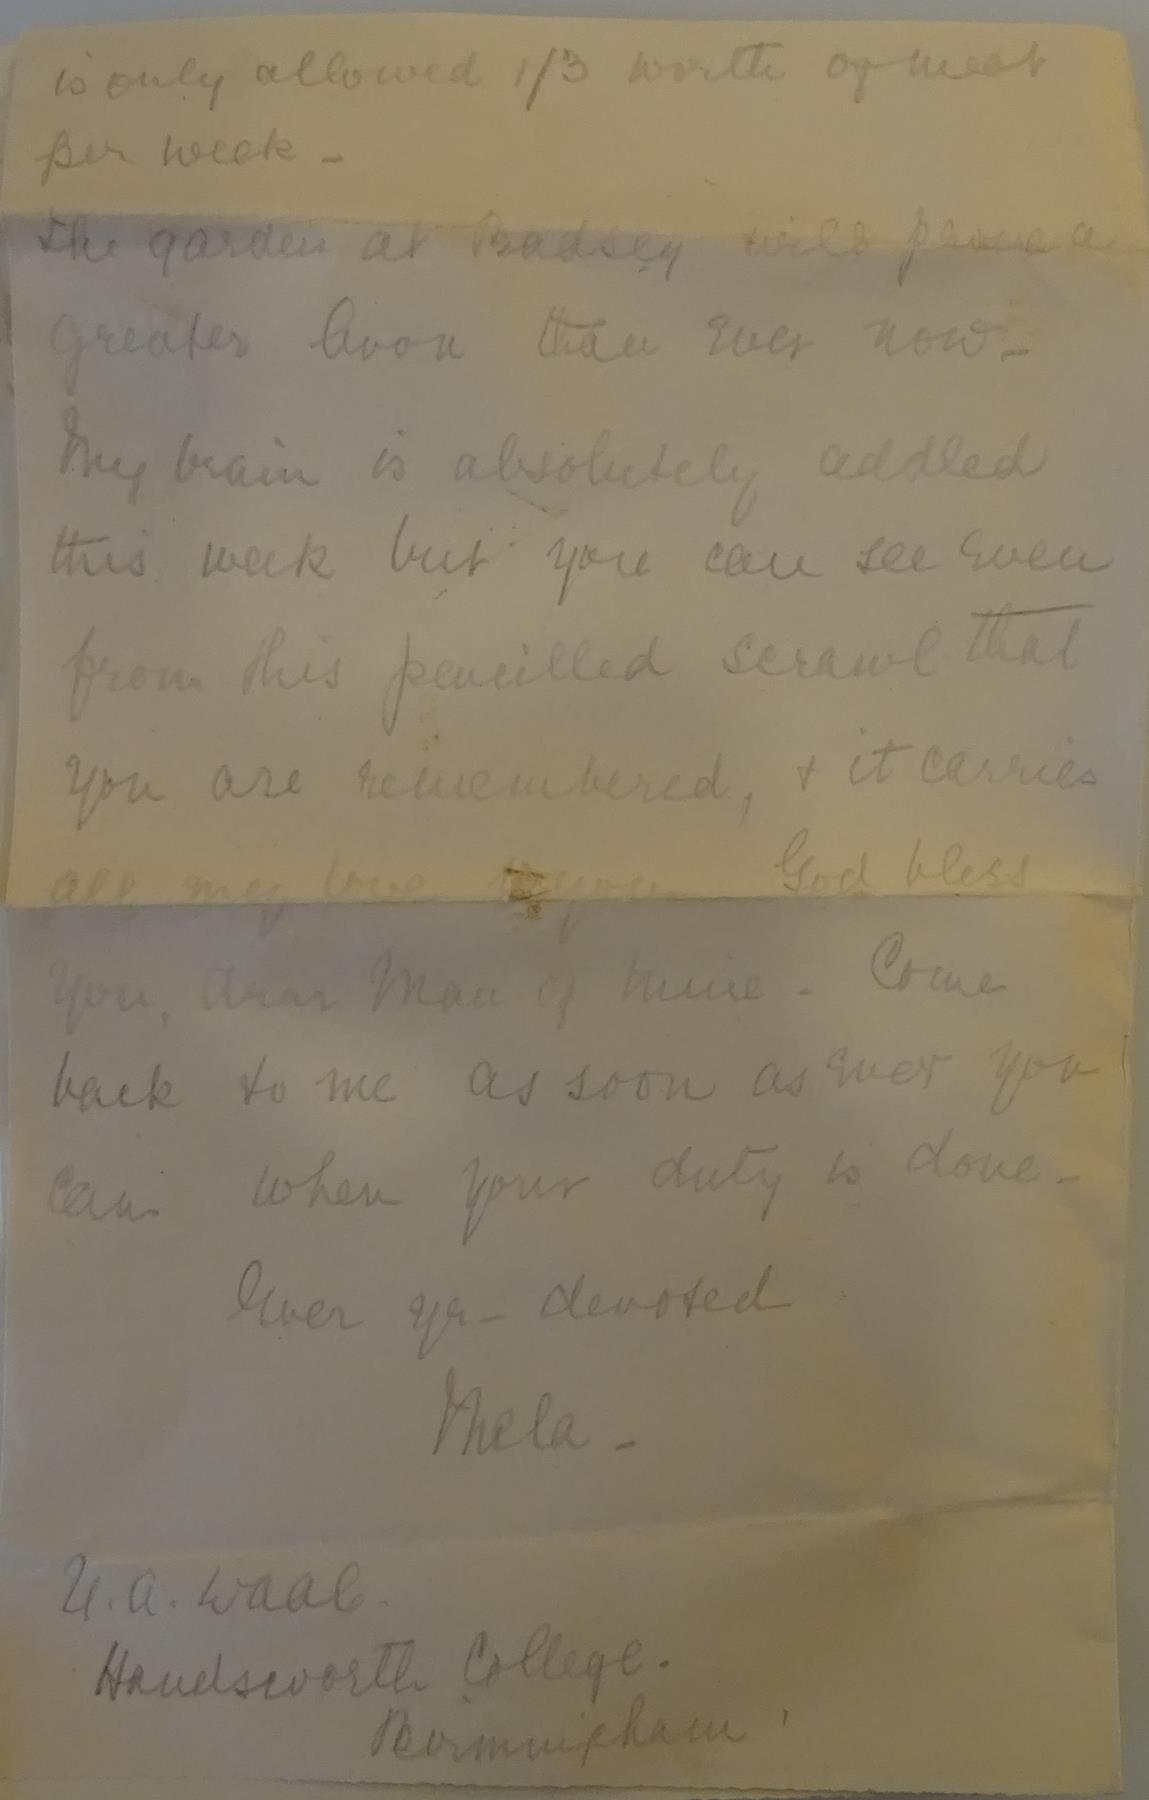 is only allowed 1/3 worth of meat
per week -
The garden at Badsey will prove a
greater boon than ever now -
My brain is absolutely addled
this week but you can see even
from this pencilled scrawl that
you are remembered, + it carries
all my love to you God bless
you, dear Man of mine - Come
back to me as soon as ever you
can when your duty is done -
Ever yr - devoted
Mela -
U.A. Waal
Handsworth College.
Birmingham